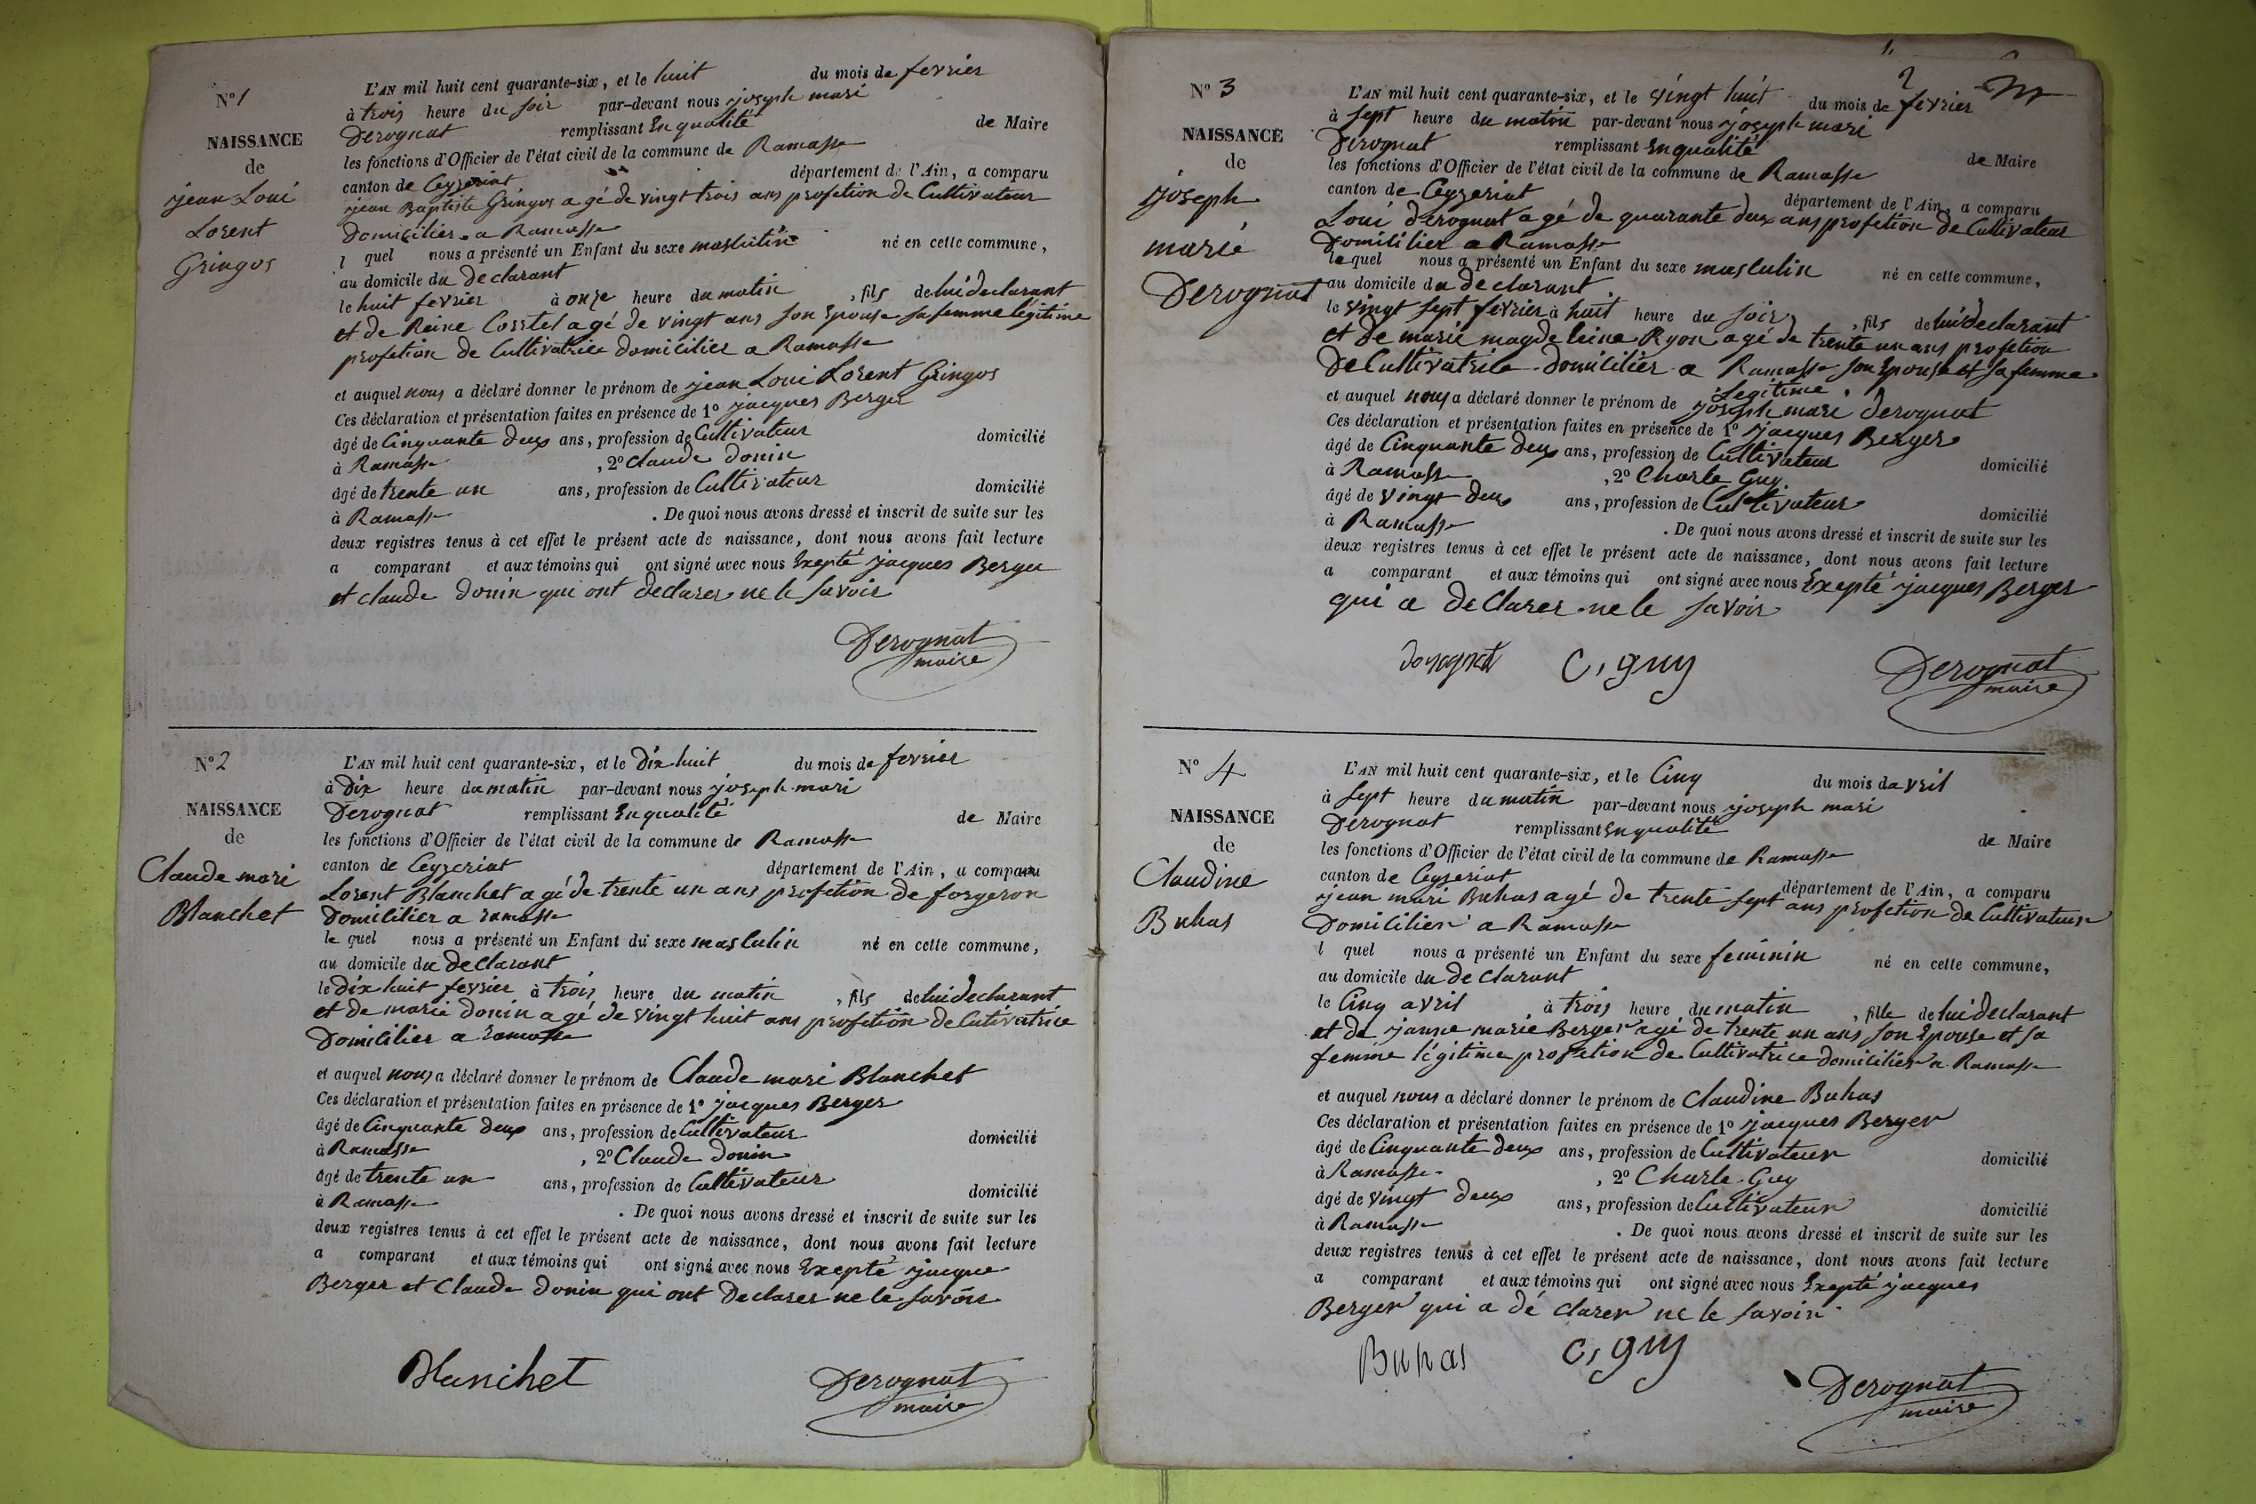 N° 1
NAISSANCE
de
jean Loui
Lorent
Gringos
L'AN mil huit cent quarante-six, et le huit du mois de fevrier
à trois heure du soir par-devant nous joseph mari
Derognat remplissant En qualité de Maire
les fonctions d'Officier de l'état civil de la commune de Ramasse
canton de Ceyzeriat département de l'Ain, a comparu
jean Baptiste Gringos a gé de vingt trois ans profetion de Cultivateur
Domicilier a Ramasse
l quel nous a présenté un Enfant du sexe masculin né en cette commune,
au domicile du declarant
le huit fevrier à onze heure du matin , fils de lui declarant
et de Reine Corstel a gé de vingt ans son Epouse sa femme légitime
profetion de Cultivatrice domicilier a Ramasse
et auquel nous a déclaré donner le prénom de jean Loui Lorent Gringos
Ces déclaration et présentation faites en présence de 1° jacques Berger
âgé de Cinquante deux ans, profession de Cultivateur domicilié
à Ramasse , 2° Claude donin
âgé de trente un ans, profession de Cultivateur domicilié
à Ramasse . De quoi nous avons dressé et inscrit de suite sur les
deux registres tenus à cet effet le présent acte de naissance, dont nous avons fait lecture
a comparant et aux témoins qui ont signé avec nous Exepté jacques Berger
et claude donin qui ont declarer ne le savoir
Derognat
maire
N° 2
NAISSANCE
de
Claude mari
Blanchet
L'AN mil huit cent quarante-six, et le Dix huit du mois de fevrier
à Dix heure du matin par-devant nous joseph mari
Derognat remplissant En qualité de Maire
les fonctions d'Officier de l'état civil de la commune de Ramasse
canton de Ceyzeriat département de l'Ain, a comparu
Lorent Blanchet a gé de trente un ans profetion de forgeron
Domicilier a ramasse
le quel nous a présenté un Enfant du sexe masculin né en cette commune,
au domicile du declarant
le dix huit fevrier à trois heure du matin , fils de lui declarant
et de marie donin a gé de vingt huit ans profetion de Cutivatrice
Domicilier a ramasse
et auquel nous a déclaré donner le prénom de Claude mari Blanchet
Ces déclaration et présentation faites en présence de 1° jacques Berger
âgé de Cinquante deux ans, profession de Cultivateur domicilié
à Ramasse , 2° Claude donin
âgé de trente un ans, profession de Cultivateur domicilié
à Ramasse . De quoi nous avons dressé et inscrit de suite sur les
deux registres tenus à cet effet le présent acte de naissance, dont nous avons fait lecture
a comparant et aux témoins qui ont signé avec nous Exepté jacque
Berger et Claude donin qui ont Declarer ne le savoir
Blanchet
Derognat
maire
N° 3
NAISSANCE
de
joseph
marie
Derognat
L'AN mil huit cent quarante-six, et le vingt huit du mois de fevrier
à sept heure du matin par-devant nous joseph mari
Derognat remplissant En qualité de Maire
les fonctions d'Officier de l'état civil de la commune de Ramasse
canton de Ceyzeriat département de l'Ain, a comparu
Loui derognat a gé de quarante dux ans profetion de Cultivateur
Domicilier a Ramasse
le quel nous a présenté un Enfant du sexe masculin né en cette commune,
au domicile du declarant
le vingt sept fevrier à huit heure du soir , fils de lui declarant
et de marie magdeleine Ryon a gé de trente un ans profetion
De Cultivatrice Domicilier a Ramasse son Epouse et sa femme
Legitime
et auquel nous a déclaré donner le prénom de joseph mari derognat
Ces déclaration et présentation faites en présence de 1° jacques Berger
âgé de Cinquante deux ans, profession de Cultivateur domicilié
à Ramasse , 2° Charle Guy
âgé de vingt deux ans, profession de Cultivateur domicilié
à Ramasse . De quoi nous avons dressé et inscrit de suite sur les
deux registres tenus à cet effet le présent acte de naissance, dont nous avons fait lecture
a comparant et aux témoins qui ont signé avec nous Exepté jacques Berger
qui a deClarer ne le savoir
C, guy
Derognat
maire
N° 4
NAISSANCE
de
Claudine
Buhas
L'AN mil huit cent quarante-six, et le Cinq du mois davril
à sept heure du matin par-devant nous joseph mari
Derognat remplissant En qualité de Maire
les fonctions d'Officier de l'état civil de la commune de Ramasse
canton de Ceyzeriat département de l'Ain, a comparu
jean mari Buhas a gé de trente sept ans profetion de Cultivateur
Domicilier a Ramasse
l quel nous a présenté un Enfant du sexe feminin né en cette commune,
au domicile du declarant
le Cinq avril à trois heure du matin , fille de lui declarant
et de janne marie Berger agé de trente un ans son Epouse et sa
femme légitime profetion de Cultivatrice domicilier a Ramasse
et auquel nous a déclaré donner le prénom de Claudine Buhas
Ces déclaration et présentation faites en présence de 1° jacques Berger
âgé de Cinquante deux ans, profession de Cultivateur domicilié
à Ramasse , 2° Charle Guy
âgé de vingt deux ans, profession de Cultivateur domicilié
à Ramasse . De quoi nous avons dressé et inscrit de suite sur les
deux registres tenus à cet effet le présent acte de naissance, dont nous avons fait lecture
a comparant et aux témoins qui ont signé avec nous Exepté jacques
Berger qui a dé clarer ne le savoir
Buhas C, guy
Derognat
maire